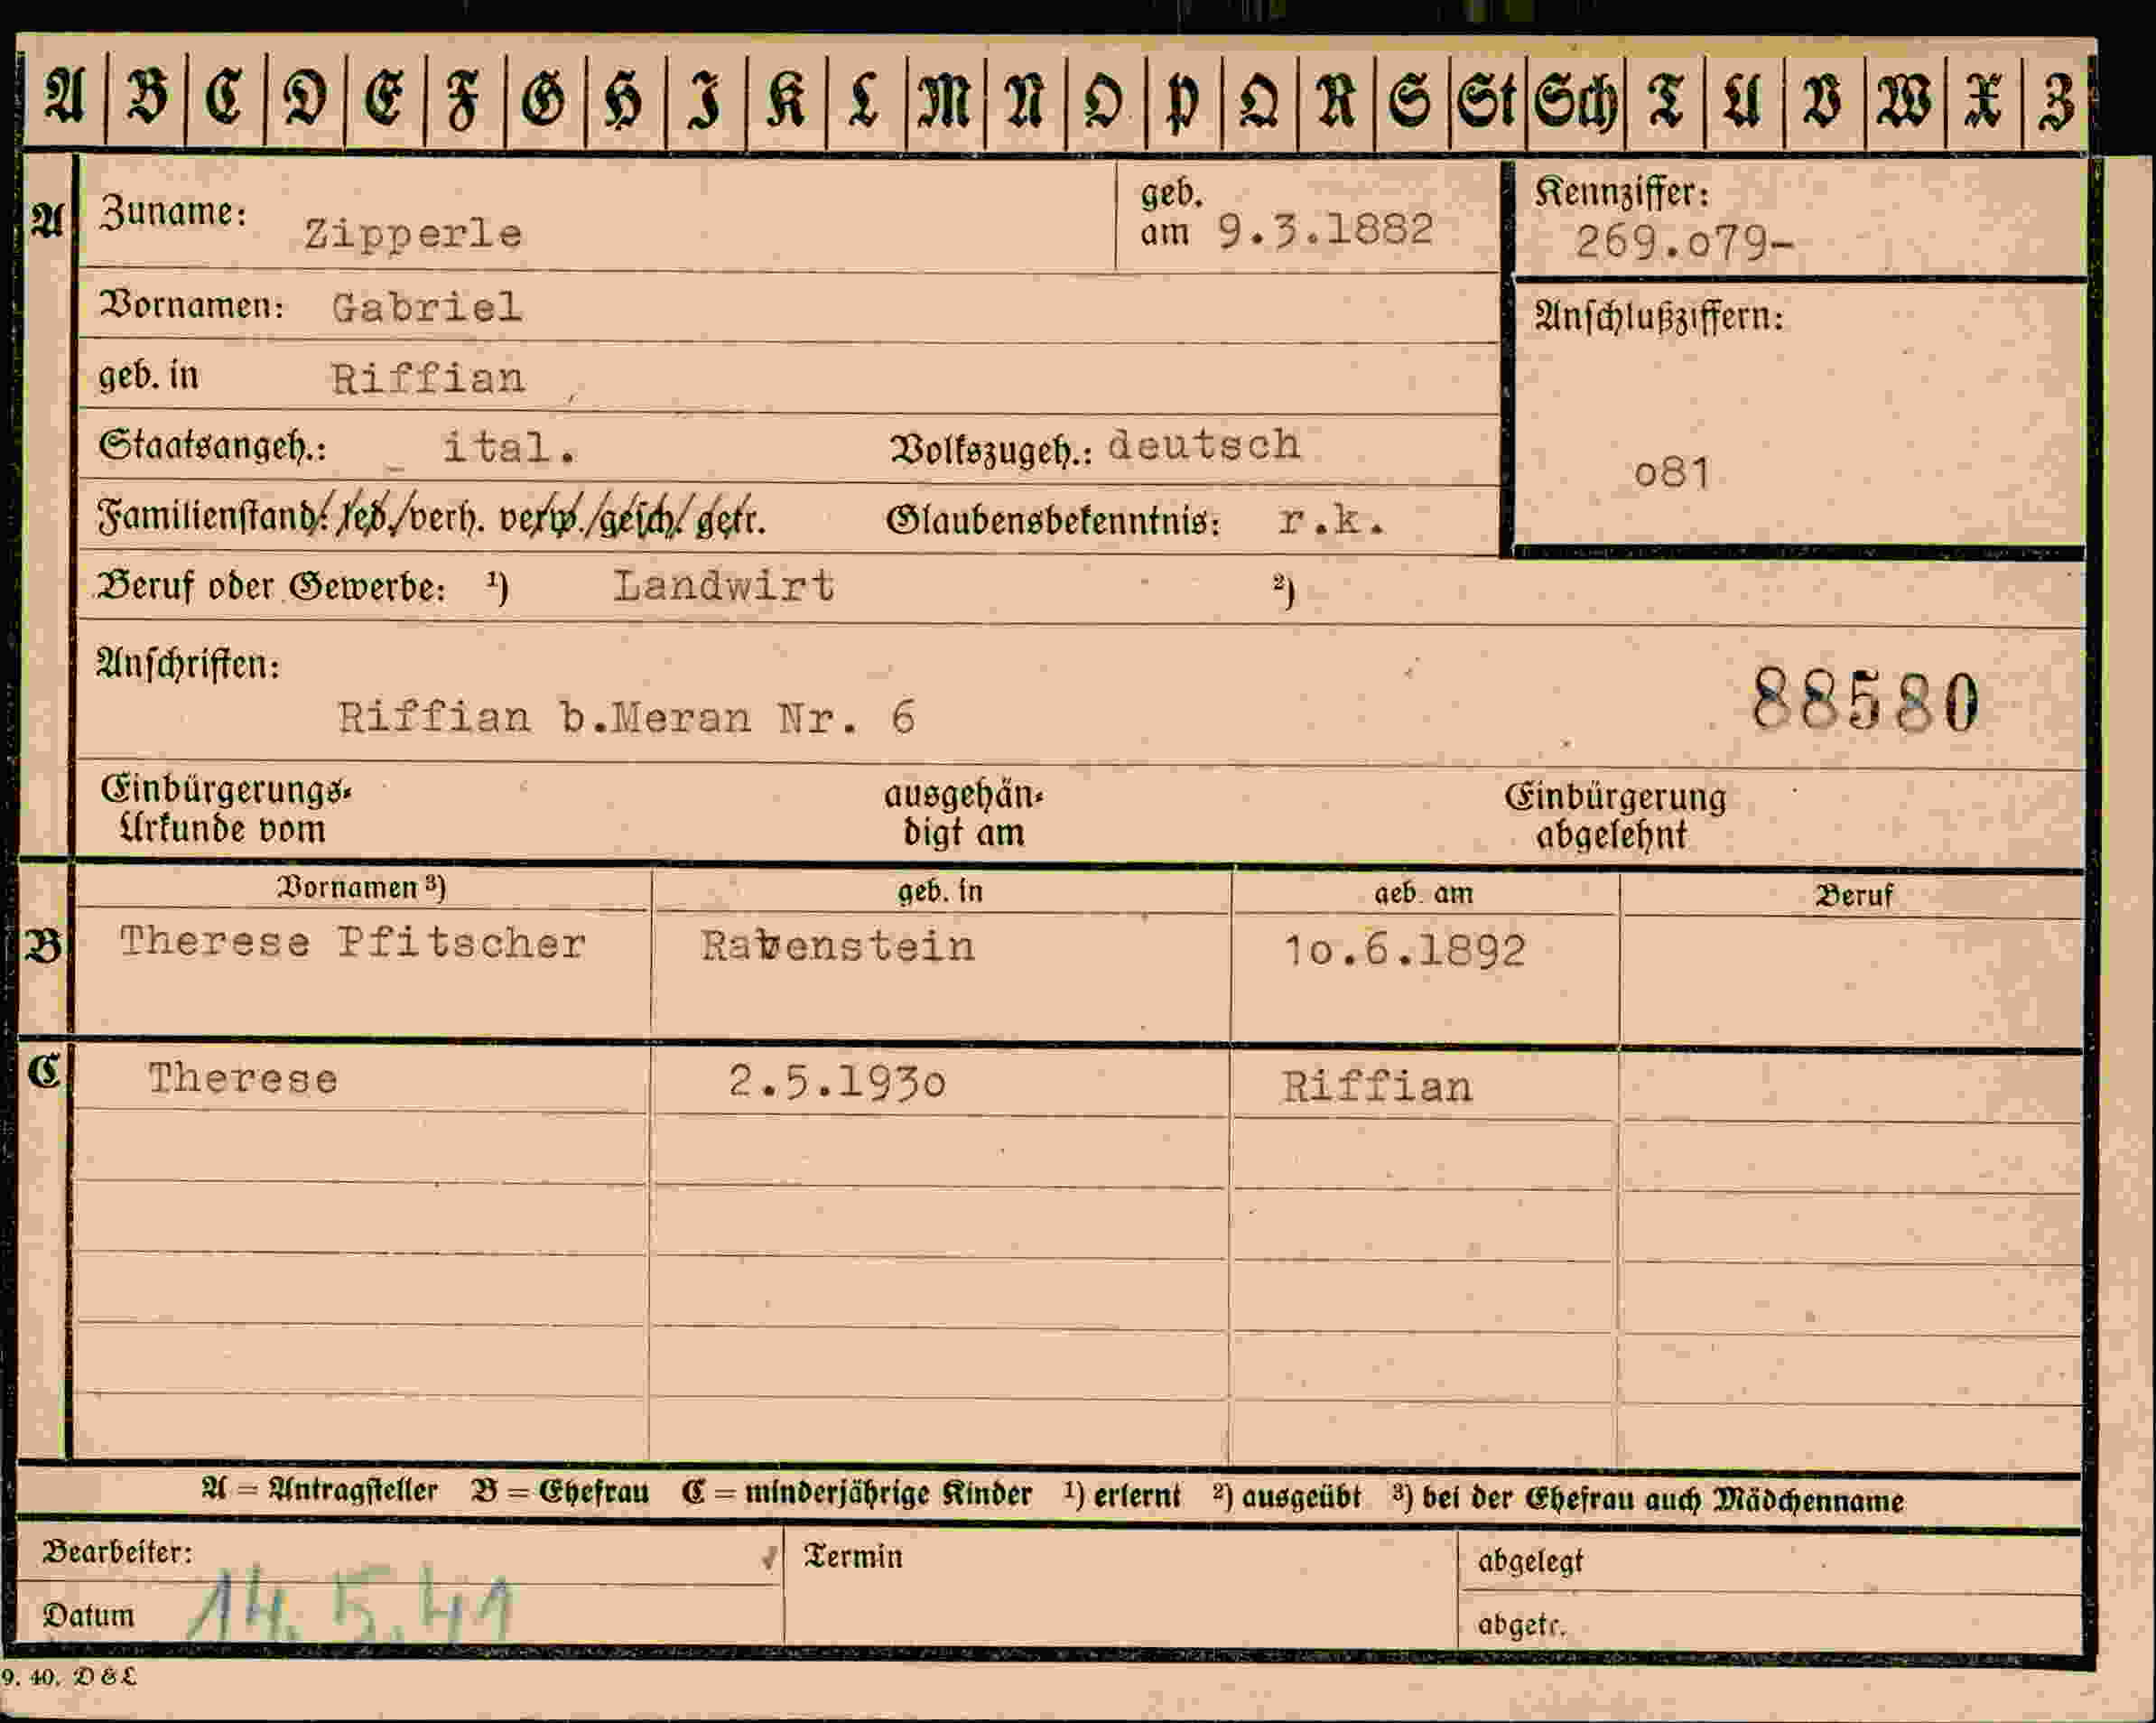 A B C D E F G H I K L M N O P Q R S St Sch T U V W X Z
A Zuname: Zipperle geb. am 9.3.1882 Kennziffer: 269.o79-
Vornamen: Gabriel Anschlußziffern:
geb. in Riffian
Staatsangeh.: ital. Volkszugeh.: deutsch o81
Familienstand: led./verh. verw./gesch./getr. Glaubensbekenntnis: r.k.
Beruf oder Gewerbe: ¹) Landwirt ²)
Anschriften:
Riffian b.Meran Nr. 6 88580
Einbürgerungs- ausgehän- Einbürgerung
Urkunde vom digt am abgelehnt
Vornamen ³) geb. in geb. am Beruf
B Therese Pfitscher Rabenstein 1o.6.1892
C Therese 2.5.193o Riffian
A = Antragsteller B = Ehefrau C = minderjährige Kinder ¹) erlernt ²) ausgeübt ³) bei der Ehefrau auch Mädchenname
Bearbeiter: Termin abgelegt
Datum 14.5.41 abgetr.
9. 40. D & L